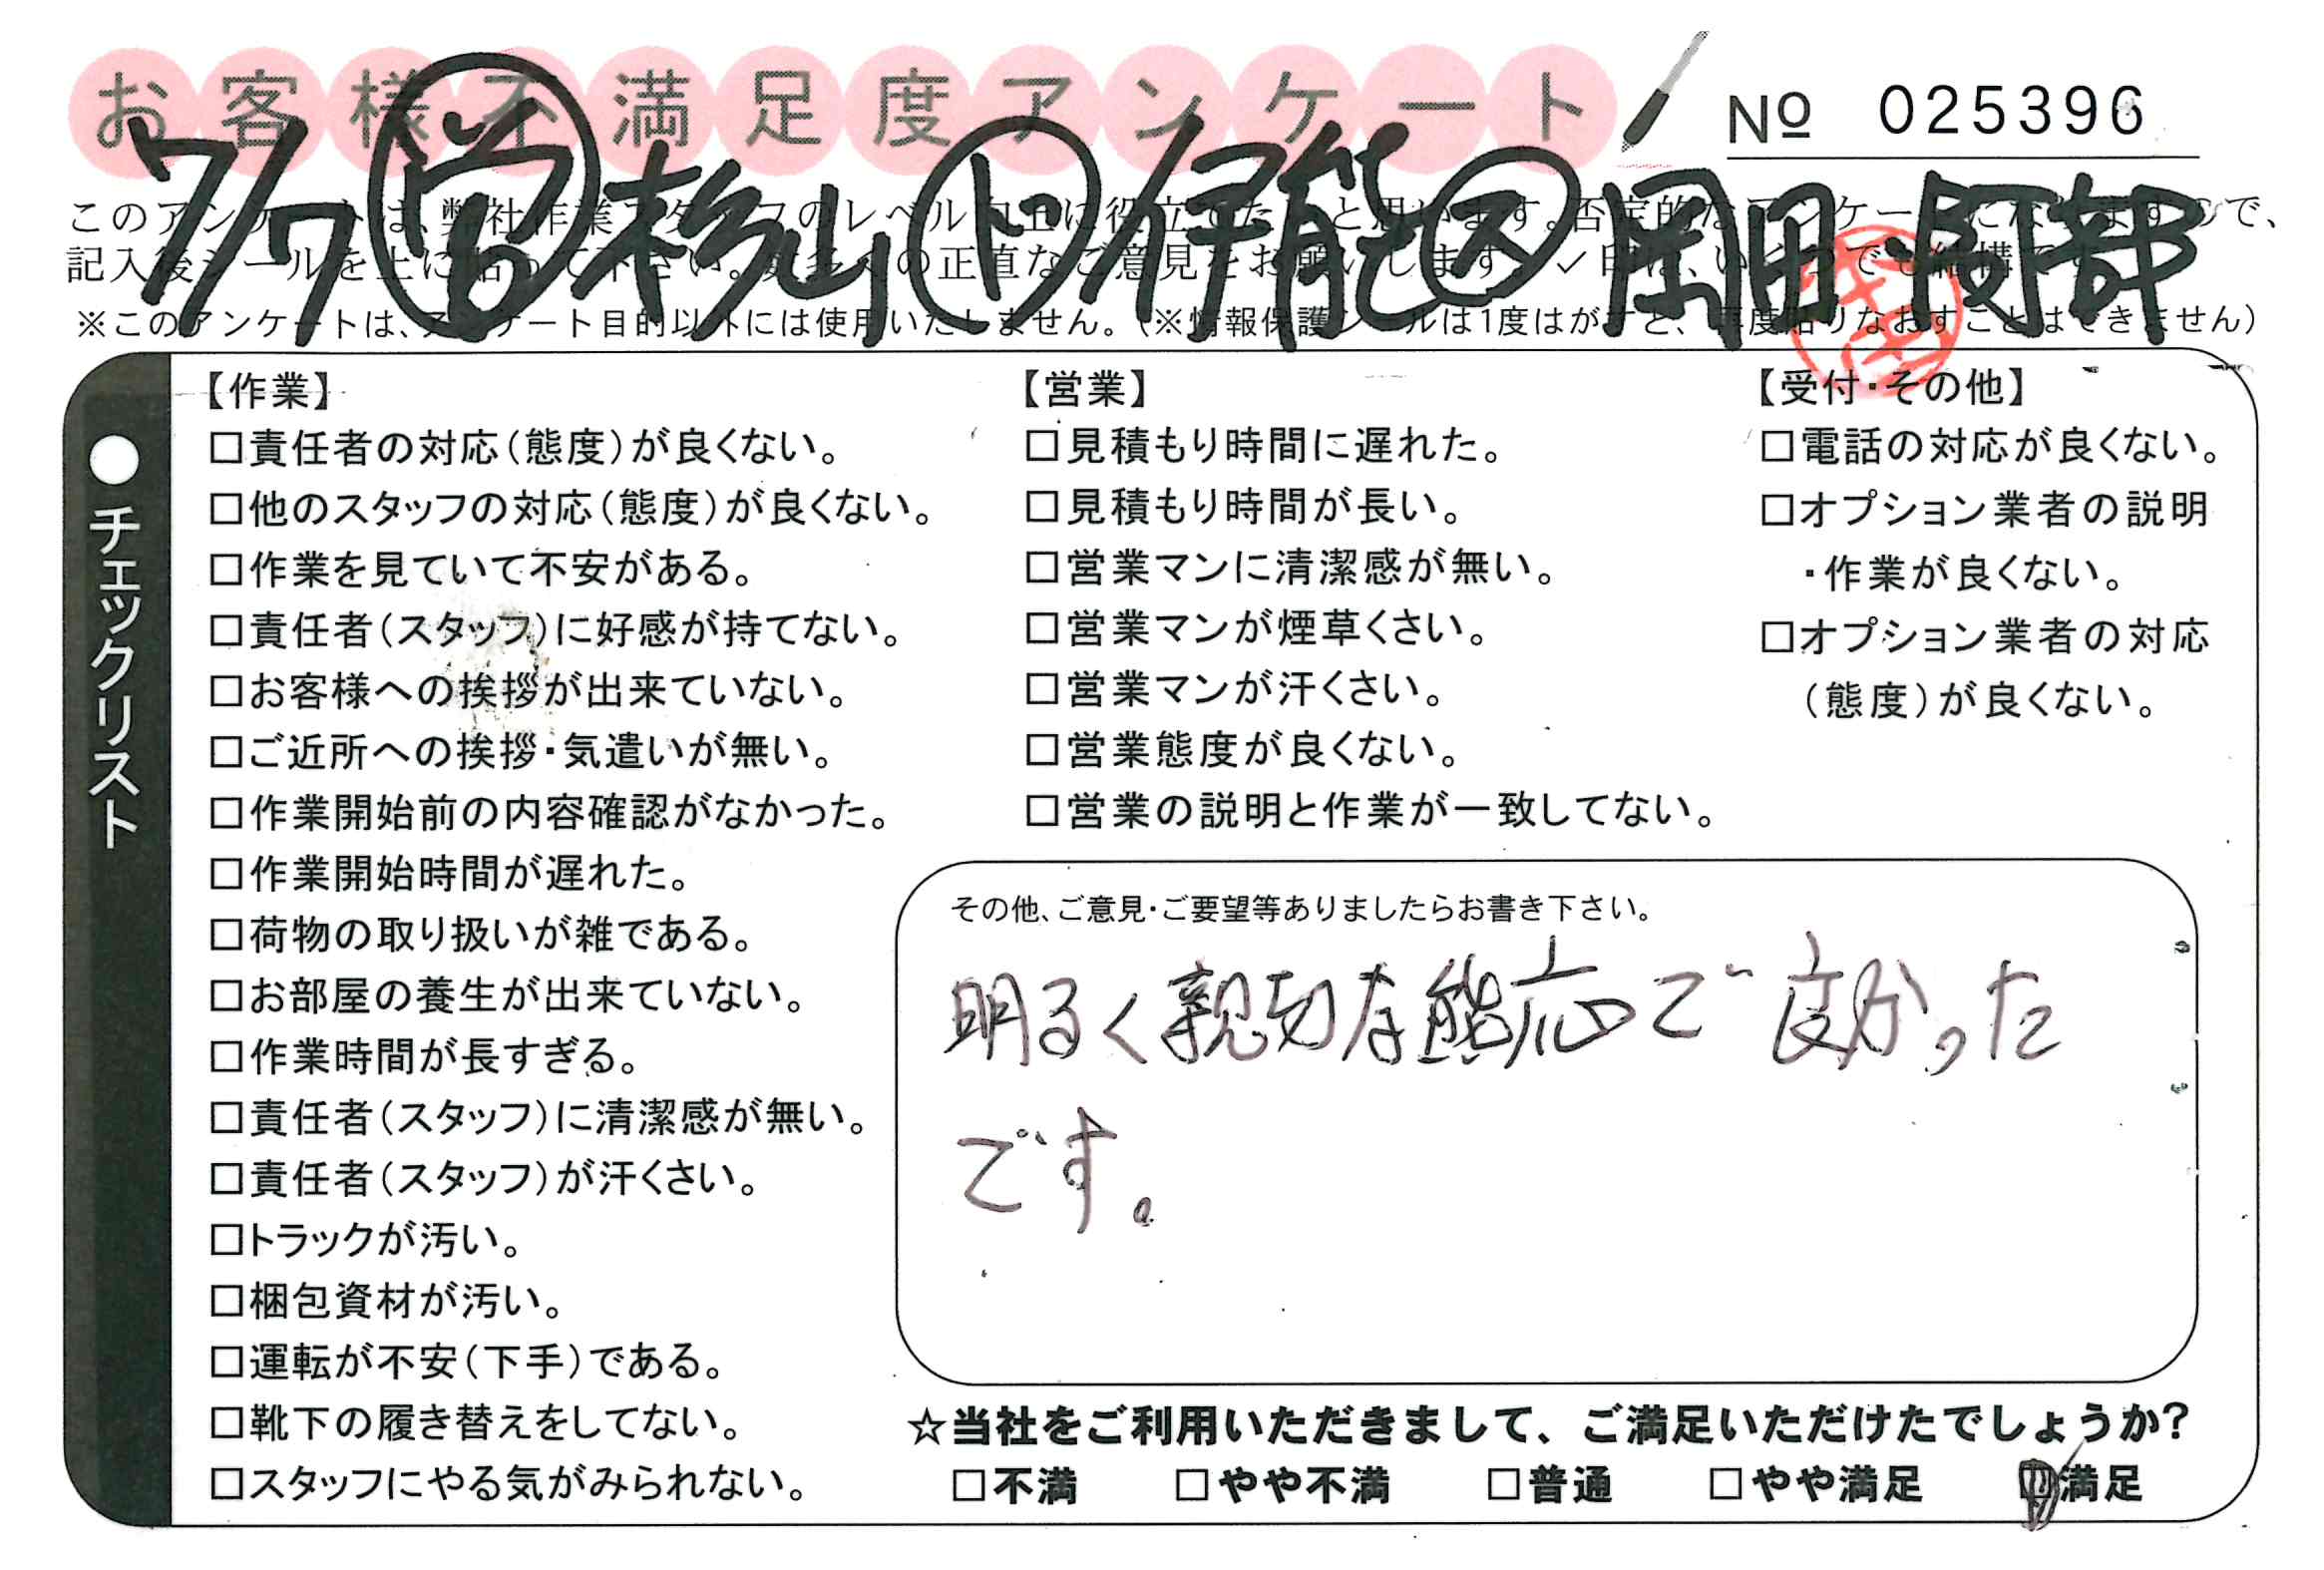 お客様不満足度アンケート
No 025396
7/7 営 杉山 ト 伊能 ス 岡田・阿部
このアンケートは、弊社作業スタッフのレベル向上に役立てたいと思います。否定的なアンケートになりますので、
記入後シールを上に貼って下さい。数多くの正直なご意見をお願いします。✓印は、いくつでも結構です。
※このアンケートは、アンケート目的以外には使用いたしません。(※情報保護シールは1度はがすと、再度貼りなおすことはできません)
●チェックリスト
【作業】
□責任者の対応(態度)が良くない。
□他のスタッフの対応(態度)が良くない。
□作業を見ていて不安がある。
□責任者(スタッフ)に好感が持てない。
□お客様への挨拶が出来ていない。
□ご近所への挨拶・気遣いが無い。
□作業開始前の内容確認がなかった。
□作業開始時間が遅れた。
□荷物の取り扱いが雑である。
□お部屋の養生が出来ていない。
□作業時間が長すぎる。
□責任者(スタッフ)に清潔感が無い。
□責任者(スタッフ)が汗くさい。
□トラックが汚い。
□梱包資材が汚い。
□運転が不安(下手)である。
□靴下の履き替えをしてない。
□スタッフにやる気がみられない。
【営業】
□見積もり時間に遅れた。
□見積もり時間が長い。
□営業マンに清潔感が無い。
□営業マンが煙草くさい。
□営業マンが汗くさい。
□営業態度が良くない。
□営業の説明と作業が一致してない。
【受付・その他】
□電話の対応が良くない。
□オプション業者の説明
・作業が良くない。
□オプション業者の対応
(態度)が良くない。
その他、ご意見・ご要望等ありましたらお書き下さい。
明るく親切な態応で度かった
です。
☆当社をご利用いただきまして、ご満足いただけたでしょうか?
□不満 □やや不満 □普通 □やや満足 ☑満足